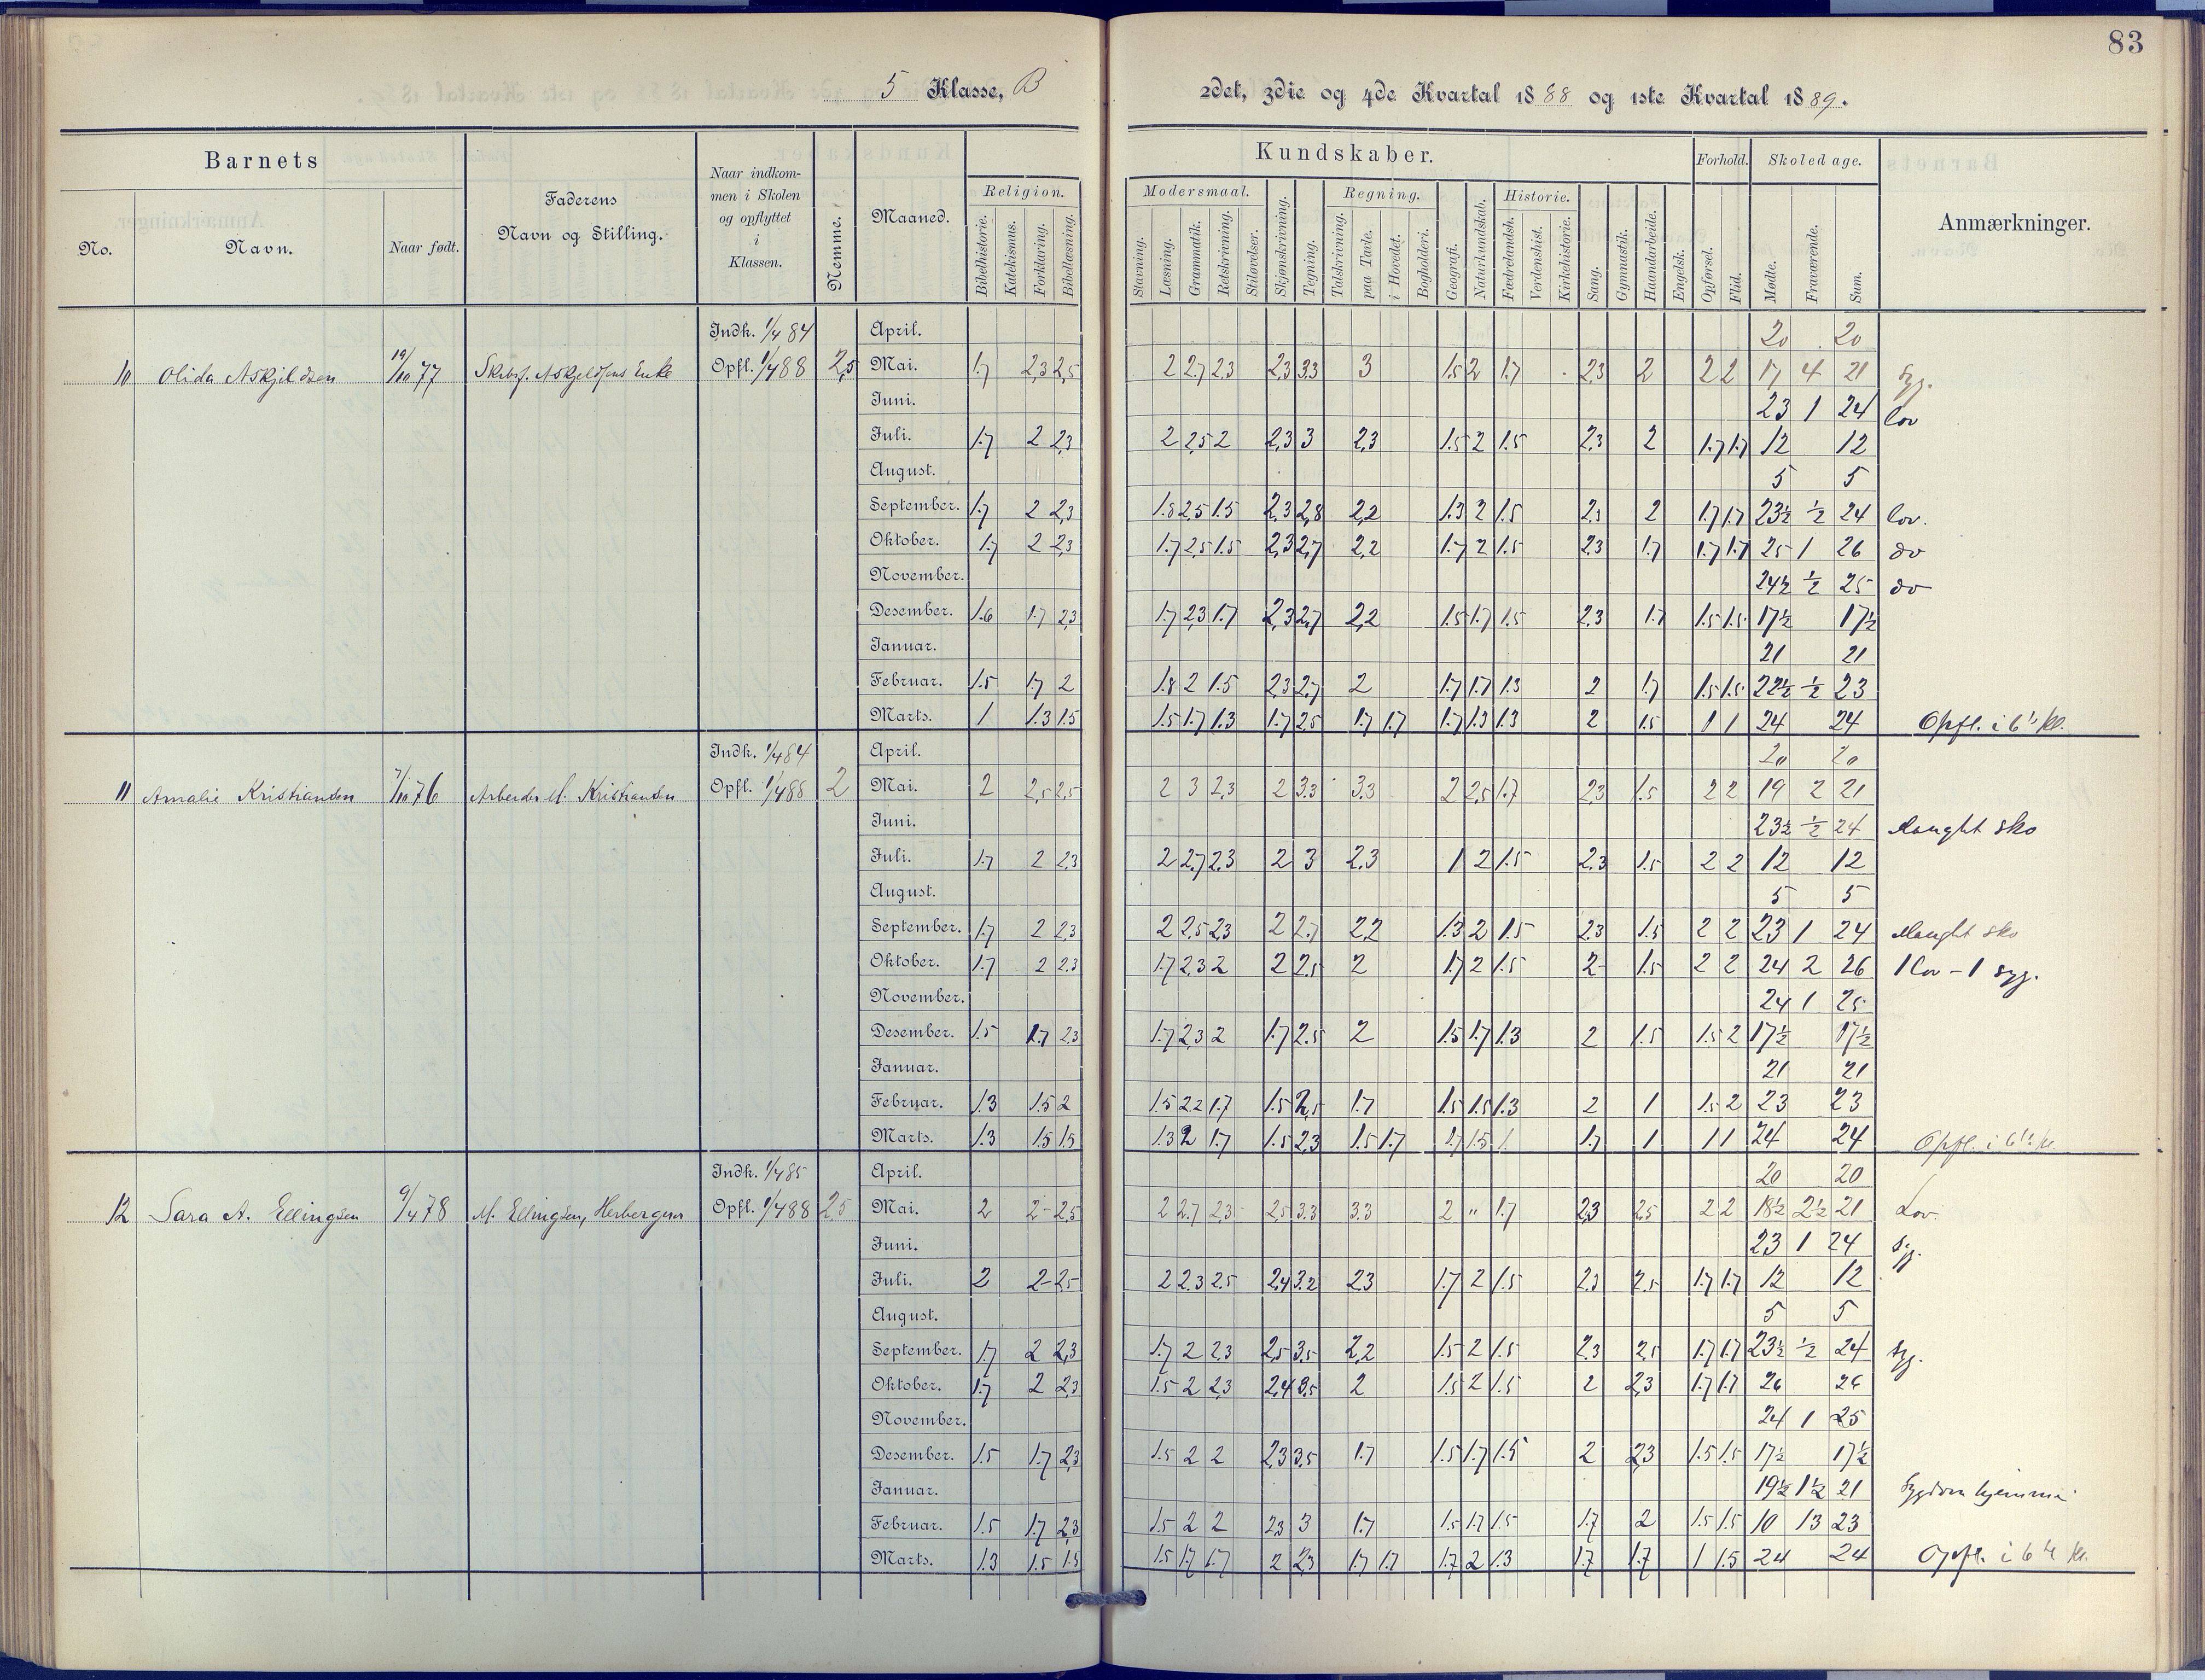 83
5 Klasse, B
2det, 3die og 4de Kvartal 1888 og 1ste Kvartal 1889.
Barnets
Faderens Navn og Stilling.
Naar indkommen i Skolen og opflyttet i Klassen.
Nemme.
Maaned.
Kundskaber.
Forhold.
Skoledage.
Anmærkninger.
No. Navn. Naar født.
Religion. Modersmaal. Regning. Historie.
Bibelhistorie. Katekismus. Forklaring. Bibellæsning.
Stavning. Læsning. Grammatik. Retskrivning. Stiløvelser. Skjønskrivning. Tegning. Talskrivning. paa Tavle. i Hovedet. Bogholderi. Geografi. Naturkundskab. Fædrelandsh. Verdenshist. Kirkehistorie. Sang. Gymnastik. Haandarbeide. Engelsk. Opførsel. Flid. Mødte. Fraværende. Sum.
Indk. 1/4 84 April. 20 20
10 Olida Askjeldsen 19/10 77 Opfl. 1/4 88 2,5 Mai. 1.7 2,3 2,5 2 2.7 2.3 2.3 3.3 3 1.5 2 1.7 2.3 2 2 2 17 4 21 Syg.
Juni. 23 1 24 lov
Juli. 1.7 2 2,3 2 2,5 2 2,3 3 2,3 1.5 2 1.5 2.3 2 1.7 1.7 12 12
August. 5 5
September. 1.7 2 2,3 1.8 2.5 1.5 2.3 2,8 2,2 1.3 2 1.5 2.3 2 1.7 1.7 23½ ½ 24 lov.
Oktober. 1.7 2 2,3 1.7 2.5 1.5 2,3 2,7 2,2 1.7 2 1.5 2.3 1.7 1.7 1.7 25 1 26 do
November. 24½ ½ 25 do
Desember. 1.6 1.7 2,3 1.7 2,3 1.7 2,3 2,7 2,2 1.5 1.7 1.5 2.3 1.7 1.5 1.5 17½ 17½
Januar. 21 21
Februar. 1.5 1.7 2 1.8 2 1.5 2.3 2.7 2 1.7 1.7 1.3 2 1.7 1.5 1.5 22½ ½ 23
Marts. 1 1.3 1.5 1.5 1.7 1.3 1.7 2.5 1.7 1.7 1.7 1.3 1.3 2 1.5 1 1 24 24 Opfl. i 6 kl.
Indk. 1/4 84 April. 20 20
11 Amalie Kristiansen 7/10 76 Arbeider M. Kristiansen Opfl. 1/4 88 2 Mai. 2 2,5 2,5 2 3 2,3 2 3.3 3.3 2 2,5 1.7 2.3 1.5 2 2 19 2 21
Juni. 23½ ½ 24 Manght sko
Juli. 1.7 2 2.3 2 2.7 2.3 2 3 2.3 1 2 1.5 2.3 1.5 2 2 12 12
August. 5 5
September. 1.7 2 2.3 2 2.5 2.3 2 2.7 2.2 1.3 2 1.5 2.3 1.5 2 2 23 1 24 Manght sko
Oktober. 1.7 2 2.3 1.7 2.3 2 2 2.5 2 1.7 2 1.5 2 1.5 2 2 24 2 26 1 lov - 1 syg.
November. 24 1 25
Desember. 1.5 1.7 2.3 1.7 2.3 2 1.7 2.5 2 1.5 1.7 1.3 2 1.5 1.5 2 17½ 17½
Januar. 21 21
Februar. 1.3 1.5 2 1.5 2.2 1.7 1.5 2,5 1.7 1.5 1.5 1.3 2 1 1.5 2 23 23
Marts. 1.3 1.5 1.5 1.3 2 1.7 1.5 2.3 1.5 1.7 1.7 1.5 1. 1.7 1 1 1 24 24 Opfl. i 6 kl.
Indk. 1/4 85 April. 20 20
12 Sara A. Ellingsen 9/4 78 M. Ellingsen, Opfl. 1/4 88 2,5 Mai. 2 2 2,5 2 2.7 2.3 2.5 3.3 3.3 2 " 1.7 2,3 2,5 2 2 18½ 2½ 21 Lov.
Juni. 23 1 24 Syg.
Juli. 2 2 2.5 2 2.3 2.5 2,4 3.2 2.3 1.7 2 1.5 2.3 2.5 1.7 1.7 12 12
August. 5 5
September. 1.7 2 2,3 1.7 2 2.3 2,5 3.5 2,2 1.5 2 1.5 2.3 2.5 1.7 1.7 23½ ½ 24 syg.
Oktober. 1.7 2 2.3 1.5 2 2.3 2.4 3.5 2 1.5 2 1.5 2 2,3 1.7 1.7 26 26
November. 24 1 25
Desember. 1.5 1.7 2.3 1.5 2 2 2.3 3.5 1.7 1.5 1.7 1.5 2 2,3 1.5 1.5 17½ 17½
Januar. 19½ 1½ 21 Sygdom hjemme
Februar. 1.5 1.7 2,3 1.5 2 2 2.3 3 1.7 1.5 1.7 1.5 1.7 2 1.5 1.5 10 13 23
Marts. 1.3 1.5 1.5 1.5 1.7 1.7 2 2,3 1.7 1.7 1.7 2 1.3 1.7 1.7 1 1.5 24 24 Opfl. i 6 kl.